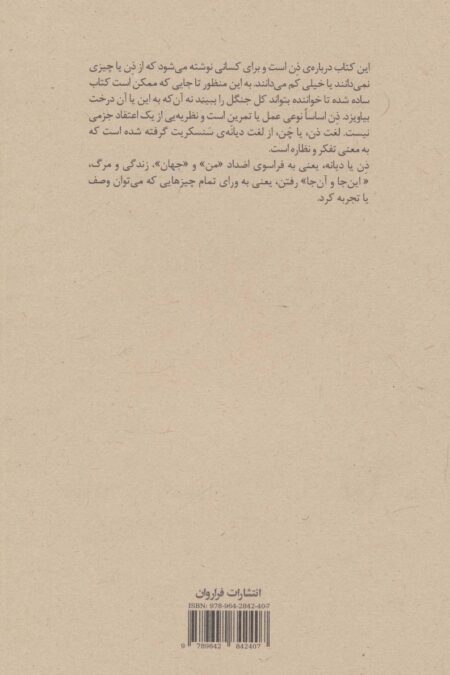 این کتاب درباره‌ی ذن است و برای کسانی نوشته می‌شود که از ذِن یا چیزی
نمی‌دانند یا خیلی کم می‌دانند. به این منظور تا جایی که ممکن است کتاب
ساده شده تا خواننده بتواند کل جنگل را ببیند نه آن‌که به این یا آن درخت
بیاویزد. ذِن اساساً نوعی عمل یا تمرین است و نظریه‌یی از یک اعتقاد جزمی
نیست. لغت ذن، یا چَن، از لغت دیانَه‌ی سَنسکریت گرفته شده است که
به معنی تفکر و نظاره است.
ذِن یا دیانه، یعنی به فراسوی اضداد «من» و «جهان»، زندگی و مرگ،
« این‌جا و آن‌جا» رفتن، یعنی به ورای تمام چیزهایی که می‌توان وصف
یا تجربه کرد.
انتشارات فراروان
ISBN: 978-964-2842-40-7
9 789642 842407